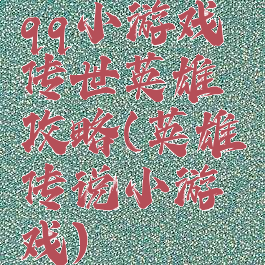 qq小游戏
传世英雄
攻略(英雄
传说小游
戏)